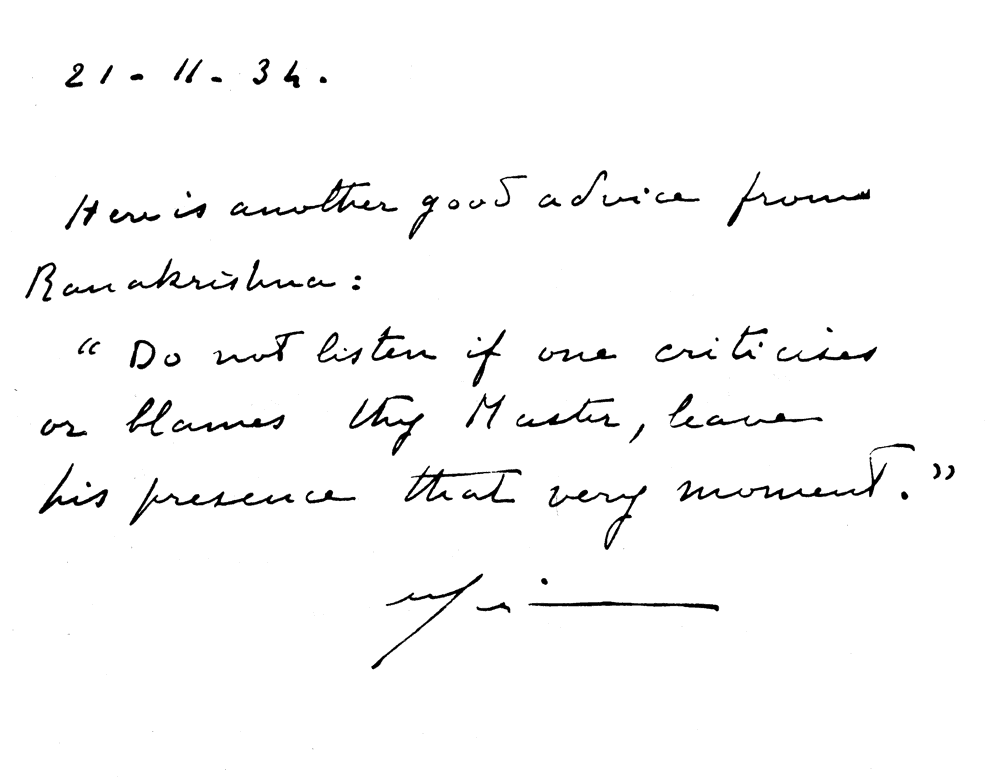 21-11-34.
Here is another good advice from
Ramakrishna:
“Do not listen if one criticises
or blames thy Master, leave
his presence that very moment.”